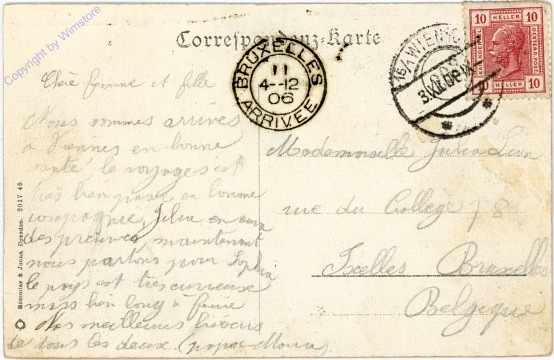 Copyright by Wimstore
Correspondenz-Karte
BRUXELLES
11
4--12
06
ARRIVÉE
16/1 WIEN
3.XII.06
10 10
HELLER HELLER
10 10
Chère femme et fille
Nous sommes arrivés
à Viennes en bonne
santé le voyage s'est
très bien passé en bonne
compagnie, Julia en aura
des preuves maintenant
nous partons pour Sophia
le pays est très curieuse
mais bon long à faire
Mes meilleurs baisers
à tous les deux (papa
Mademoiselle Julia Lion
rue du Collège 78
Ixelles Bruxelles
Belgique
Römmler & Jonas, Dresden. 2017 48